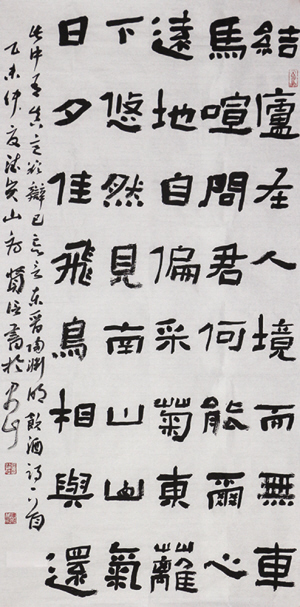 結廬在人境而無車
馬喧問君何能爾心
遠地自偏采菊東籬
下悠然見南山山氣
日夕佳飛鳥相與還
此中有真意欲辯已忘言東晋陶渊明飲酒詩一首
乙未仲夏 山 書於